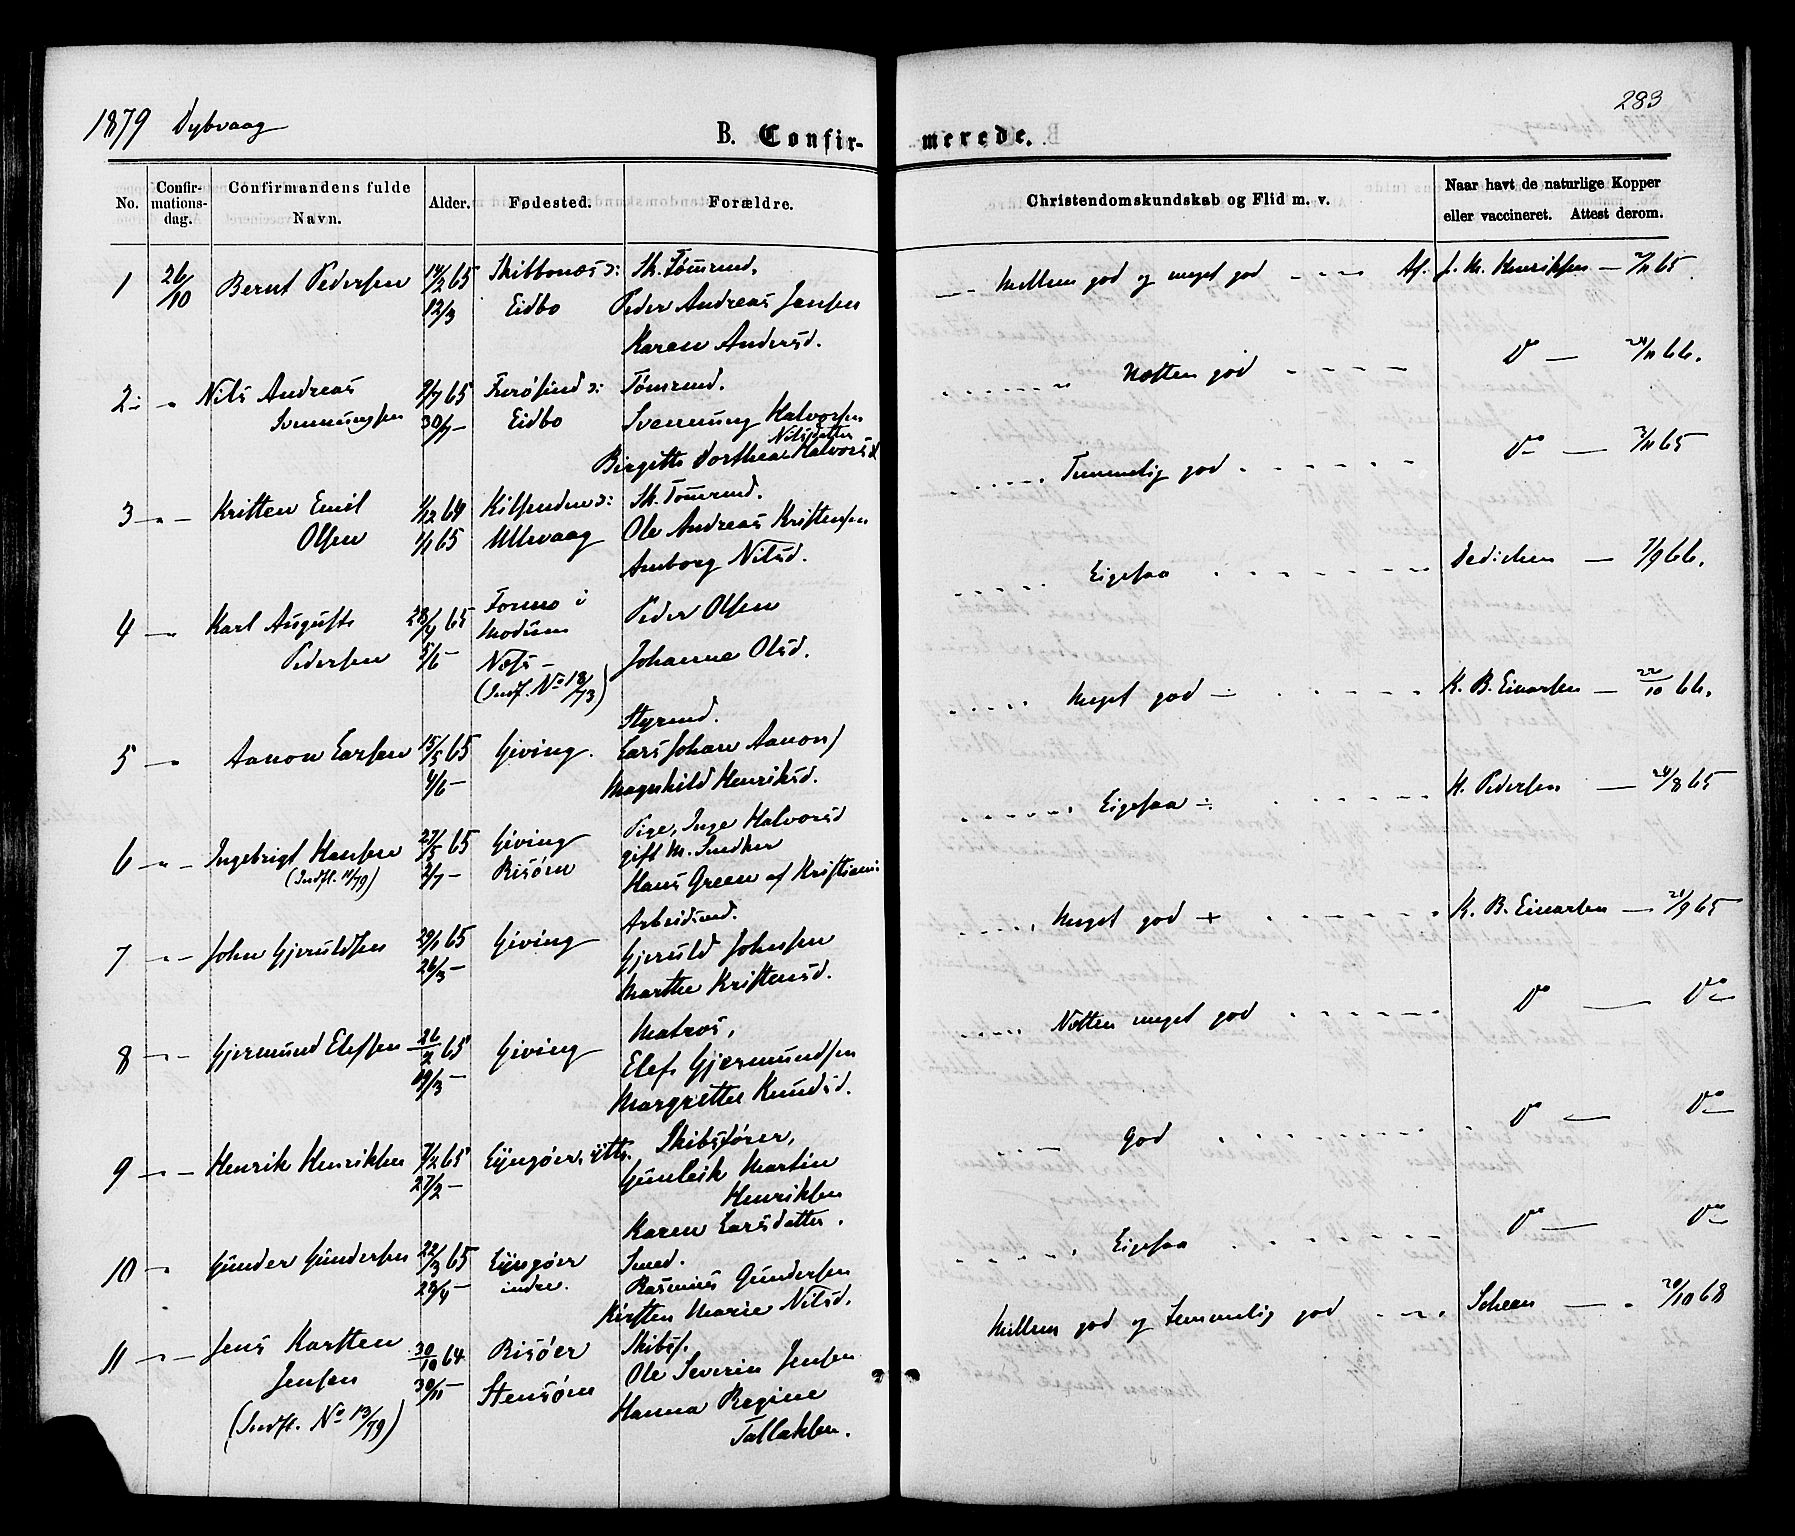 1879 Dybvaag
283
B. Confir-
merede.
No.
Confir-
mations-
dag.
Confirmandens fulde
Navn.
Alder.
Fødested.
Forældre.
Christendomskundskab og Flid m. v.
Naar havt de naturlige Kopper
eller vaccineret. Attest derom.
1 26/10 Bernt Pedersen 14/2 65
12/3
Eidbo
Sk. Tømmd.
Peder Andreas Jensen
Karen Andersd.
Mellem god og meget god
Henriksen — 65
2 " Nils Andreas
Svennungsen
9/7 65
30/7 —
Eidbo
Tømmd.
Svennung Halvorsen
Nilsdatter
Birgitte Dorthea Halvorsd
Næsten god
Do — 24/11 66.
3 " — Kristen Emil
Olsen
1/12 64
1/1 65
Ullevaag
Sk. Tømmd.
Ole Andreas Kristensen
Amborg Nilsd.
Temmelig god
Do — 3/11 65
4 — " Karl August
Pedersen
28/4 65
5/6 —
Modum
Næss —
(Indf. No 18/73)
Peder Olsen
Johanne Olsd.
Ligesaa
Dedichen — 7/9 66.
5 " Aanon Larsen
15/5 65
4/6 —
Gjeving.
Styrmd.
Lars Johan Aanons
Magnhild Henriksd.
Meget god —
K. B. Einarsen — 22/10 66.
6 " Ingebrigt Hansen
(Indfl. 11/79)
27/5 65
2/7 —
Gjeving
Risøen
Pige, Inge Halvorsd
gift m. Snedker
Hans Green af Kristiania
Ligesaa ÷
K. Pedersen — 24/8 65
7 " — John Gjeruldsen
29/1 65
26/3 —
Gjeving
Arbeidsmd.
Gjeruld Johnsen
Marthe Kristensd.
Meget god +
K. B. Einarsen — 21/9 65
8 " — Gjermund Elefsen
26/2 65
19/3 —
Gjeving
Matros,
Elef Gjermundsen
Margrethe Knudsd.
Næsten meget god
Do — Do
9 — " Henrik Henriksen
7/2 65
27/2 —
Lyngøer, ytre
Skibsfører,
Gunleik Martin
Henriksen
Karen Larsdatter.
God
Do — Do
10 — " Gunder Gundersen
22/3 65
23/4 —
Lyngøer
indre.
Smed.
Rasmus Gundersen
Kirsten Marie Nilsd.
Ligesaa
Do — Do
11 " — Jens Karsten
Jensen
(Indfl. No 13/79)
30/10 64
30/11 —
Risøer
Stensøen
Skibsf.
Ole Severin Jensen
Hanna Regine
Tallaksen.
Mellem god og temmelig god
Scheen — 20/10 68